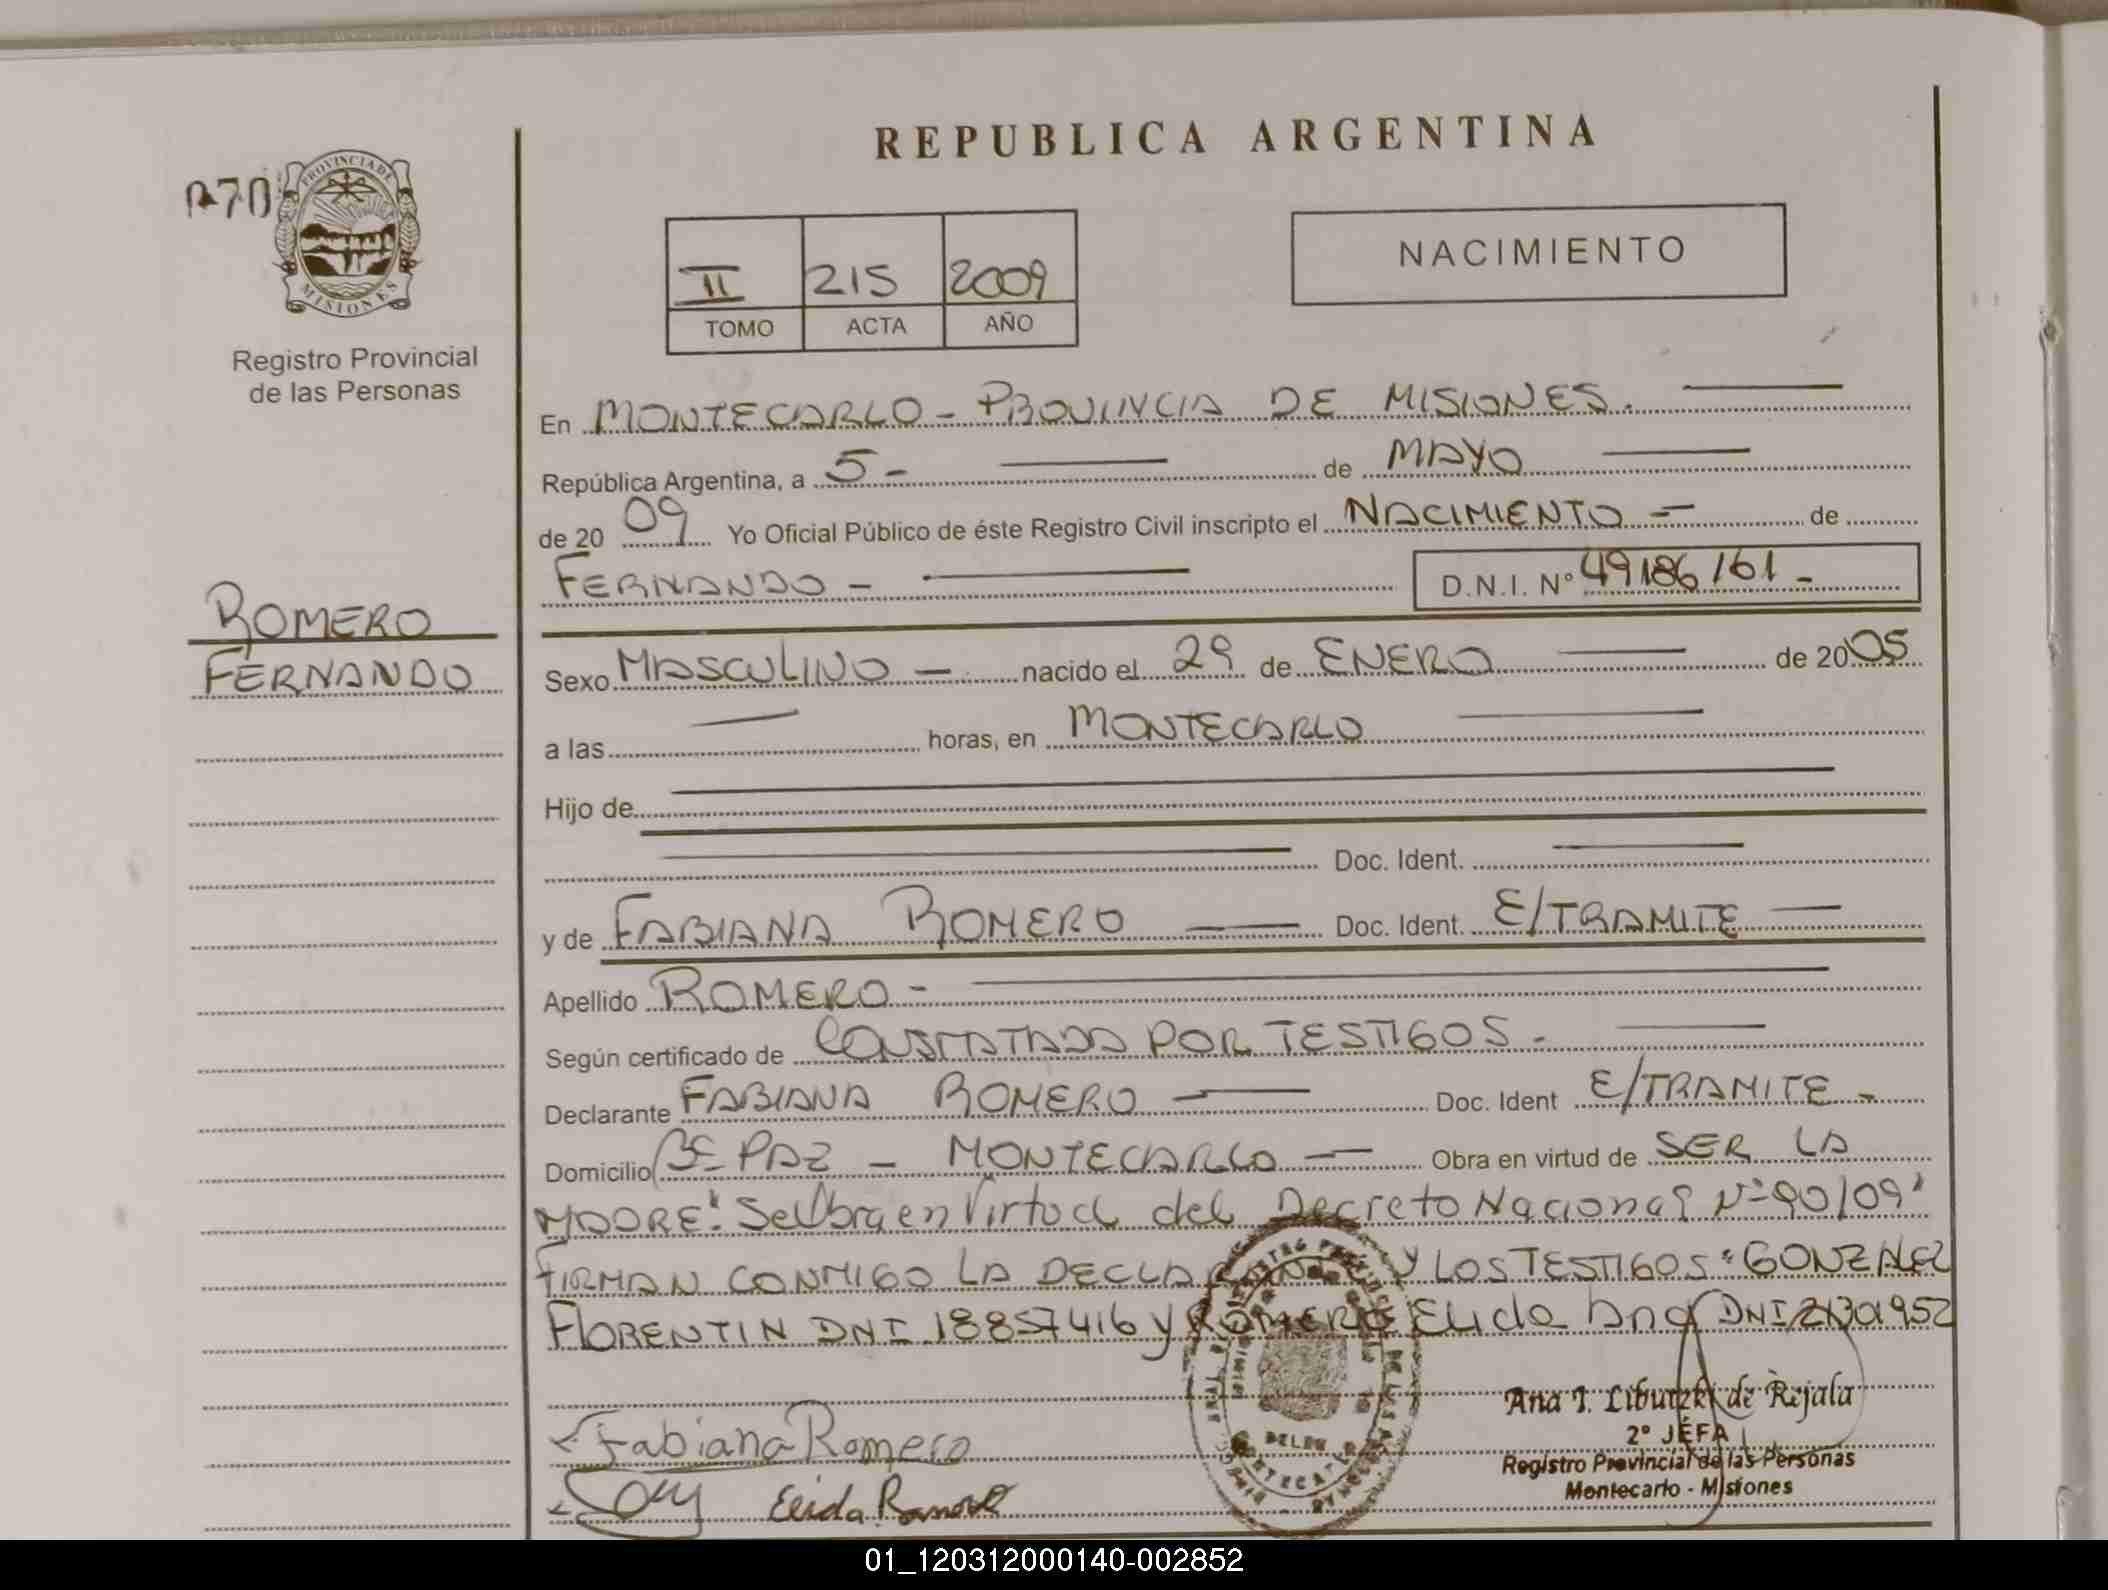 REPUBLICA ARGENTINA
PROVINCIA DE
MISIONES
Registro Provincial
de las Personas
NACIMIENTO
II 215 2009
TOMO ACTA AÑO
En MONTECARLO - PROVINCIA DE MISIONES.
República Argentina, a 5 - de MAYO
de 20 09 Yo Oficial Público de éste Registro Civil inscripto el NACIMIENTO - de
FERNANDO - D.N.I. Nº 49186161 -
ROMERO
FERNANDO
Sexo MASCULINO - nacido el 29 de ENERO de 2005
a las horas, en MONTECARLO
Hijo de
Doc. Ident.
y de FABIANA ROMERO Doc. Ident. E/TRAMITE
Apellido ROMERO -
Según certificado de CONSTATADA POR TESTIGOS. -
Declarante FABIANA ROMERO Doc. Ident E/TRAMITE -
Domicilio Bº PAZ - MONTECARLO Obra en virtud de SER LA
MADRE. Se Obra en Virtud del Decreto Nacional Nº 90/09"
FIRMAN CONMIGO LA DECLARANTE Y LOS TESTIGOS: GONZALEZ
FLORENTIN DNI 18857416 y ROMERO Elida Ana DNI
Fabiana Romero
Elida Romero
Ana I. de Rejala
2º JEFA
Registro Provincial de las Personas
Montecarlo - Misiones
01_120312000140-002852